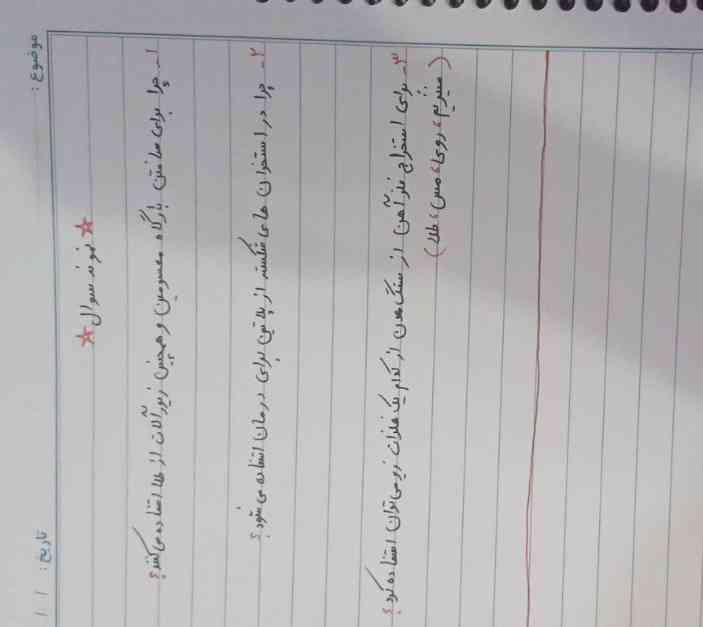 موضوع:
تاریخ: / /
☆ نمونه سوال ☆
۱- چرا برای ساختن بارگاه معصومین و همچنین زیورآلات از طلا استفاده می‌کنند؟
۲- چرا در استخوان های شکسته از پلاتین برای درمان استفاده می شود؟
۳- برای استخراج فلز آهن از سنگ معدن از کدام یک فلزات زیر می‌توان استفاده کرد؟
(منیزیم، روی، مس، طلا)